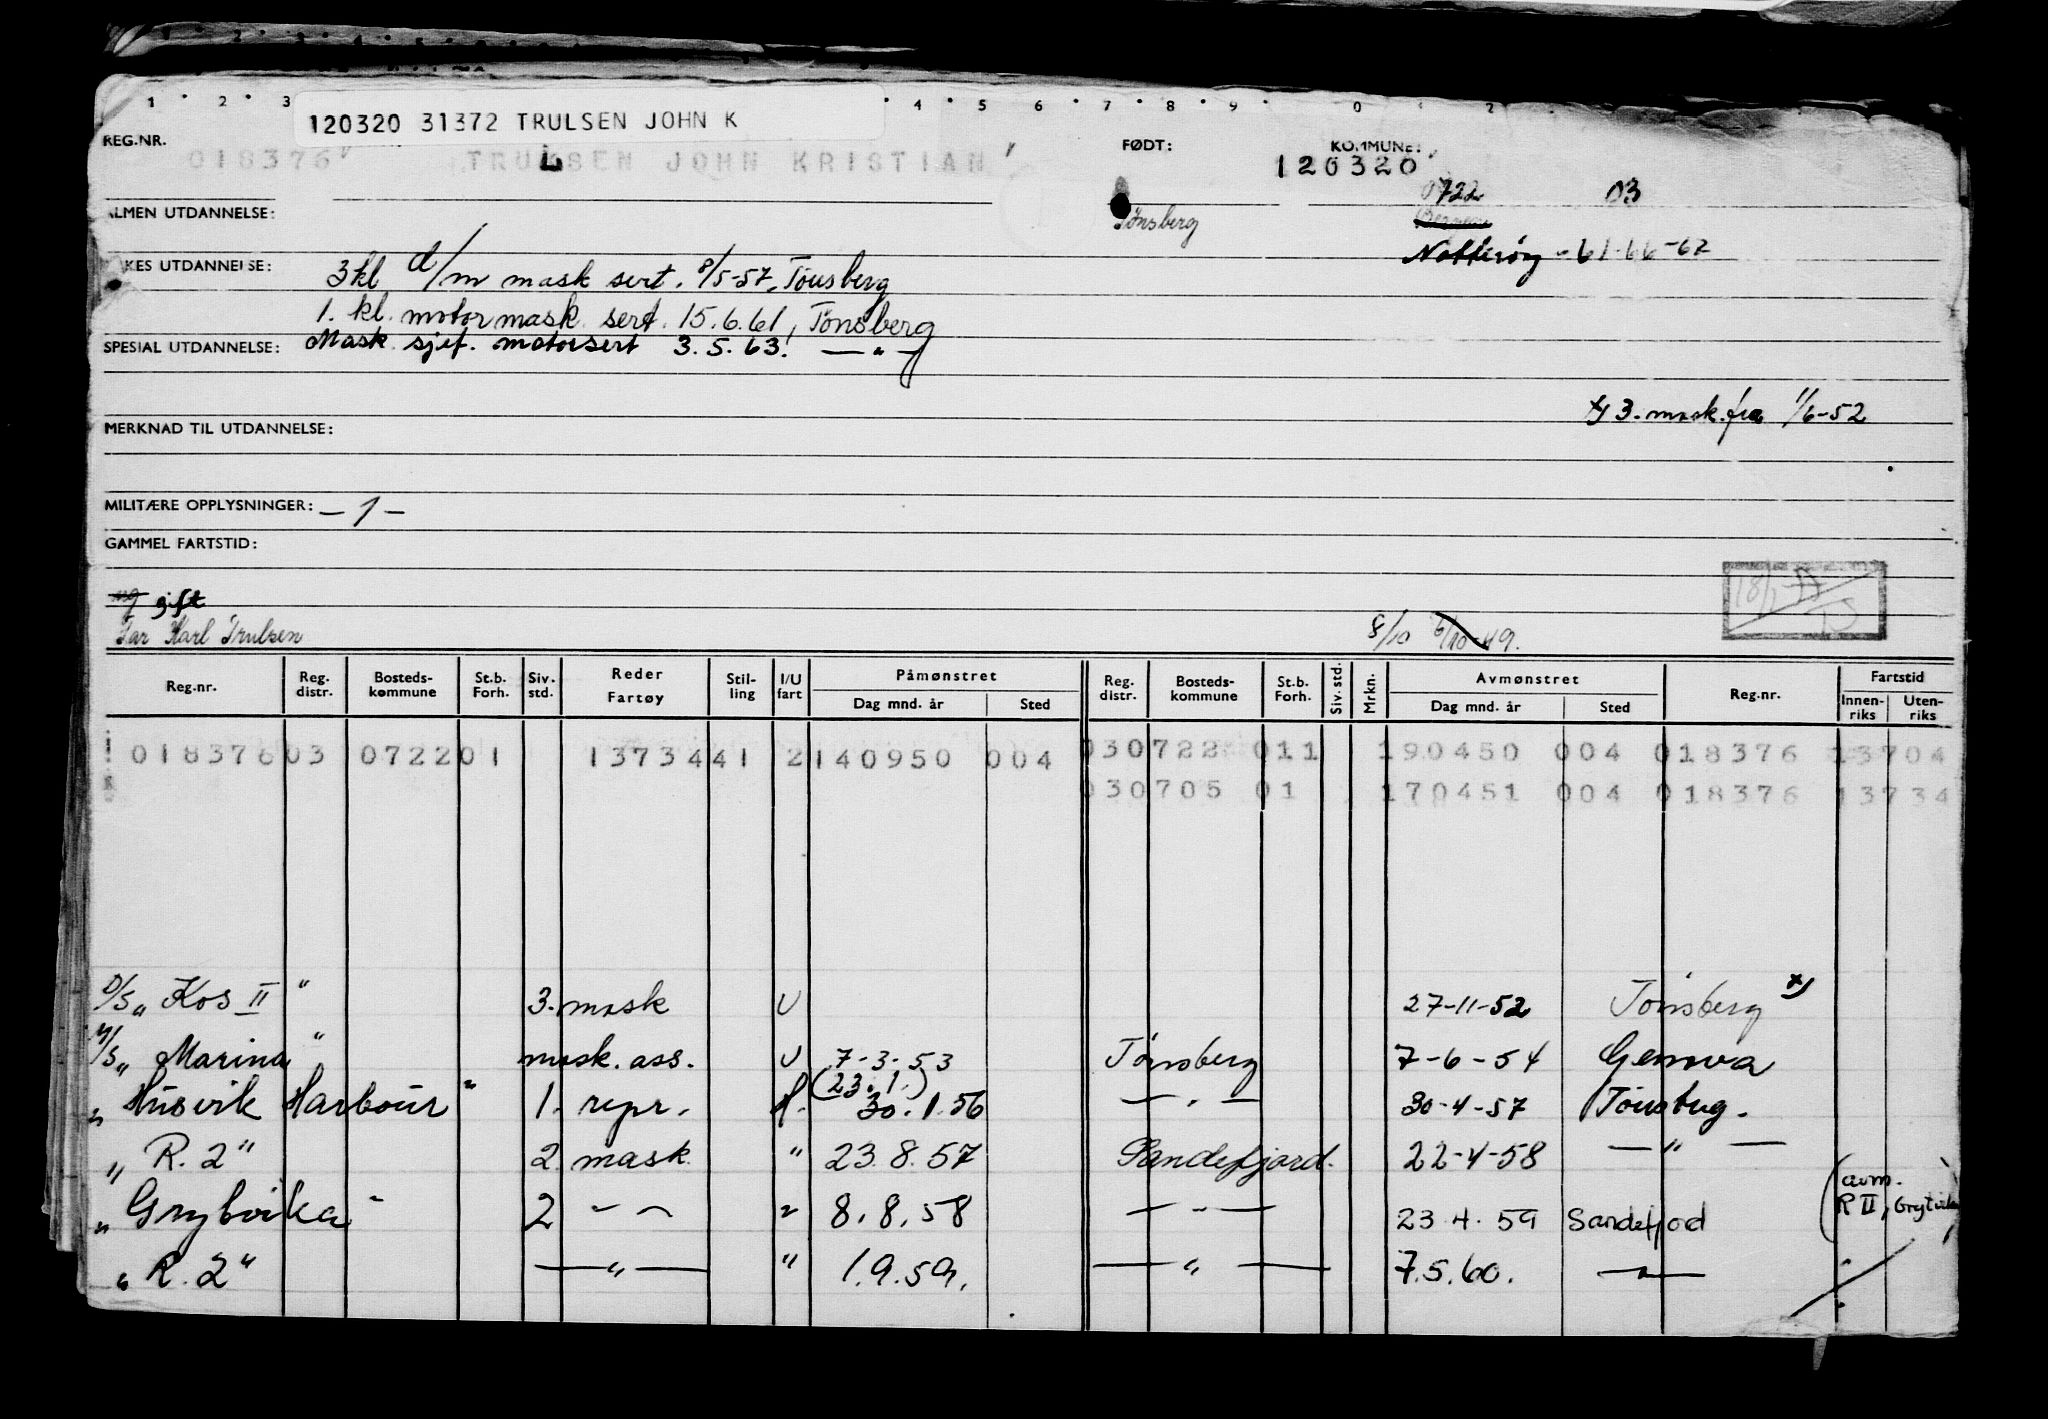 1 2 3 4 5 6 7 8 9 0 1 2
120320 31372 TRULSEN JOHN K
REG.NR. FØDT: KOMMUNE:
018376 TRULSEN JOHN KRISTIAN 120320
0722 03
ALMEN UTDANNELSE: Tønsberg Bergen
Nøtterøy - 61-66-67
YRKES UTDANNELSE: 3 kl d/m mask sert. 8/5-57, Tønsberg
1. kl. motormask. sert. 15.6.61, Tønsberg
SPESIAL UTDANNELSE: Mask. sjef. motorsert 3.5.63. — " —
x) 3. mask. fra 1/6-52
MERKNAD TIL UTDANNELSE:
MILITÆRE OPPLYSNINGER: - 1 -
GAMMEL FARTSTID:
ug gift
Far Karl Trulsen
8/10 6/10-49.
Reg.nr. Reg. distr. Bosteds-kommune St.b. Forh. Siv. std. Reder Fartøy Stil-ling I/U fart Påmønstret Dag mnd. år Sted Reg. distr. Bosteds-kommune St.b. Forh. Siv. std. Mrkn. Avmønstret Dag mnd. år Sted Reg.nr. Fartstid Innen-riks Uten-riks
018376 03 0722 01 13734 41 2 140950 004 030722 011 190450 004 018376 13704
030705 01 170451 004 018376 13734
D/S "Kos II" 3. mask U 27-11-52 Tønsberg x)
M/S "Marina" mask. ass. U 7-3-53 Tønsberg 7-6-54 Genova
(23.1.)
" Husvik Harbour" 1. repr. H. 30.1.56 — " — 30-4-57 Tønsberg.
" R. 2" 2. mask. " 23.8.57 Sandefjord. 22-4-58 — " —
(avm. R II, Grytvika)
" Grytvika" 2 — " — " 8.8.58 — " — 23.4.59 Sandefjord
" R. 2" — " — " 1.9.59. — " — 7.5.60. — " —